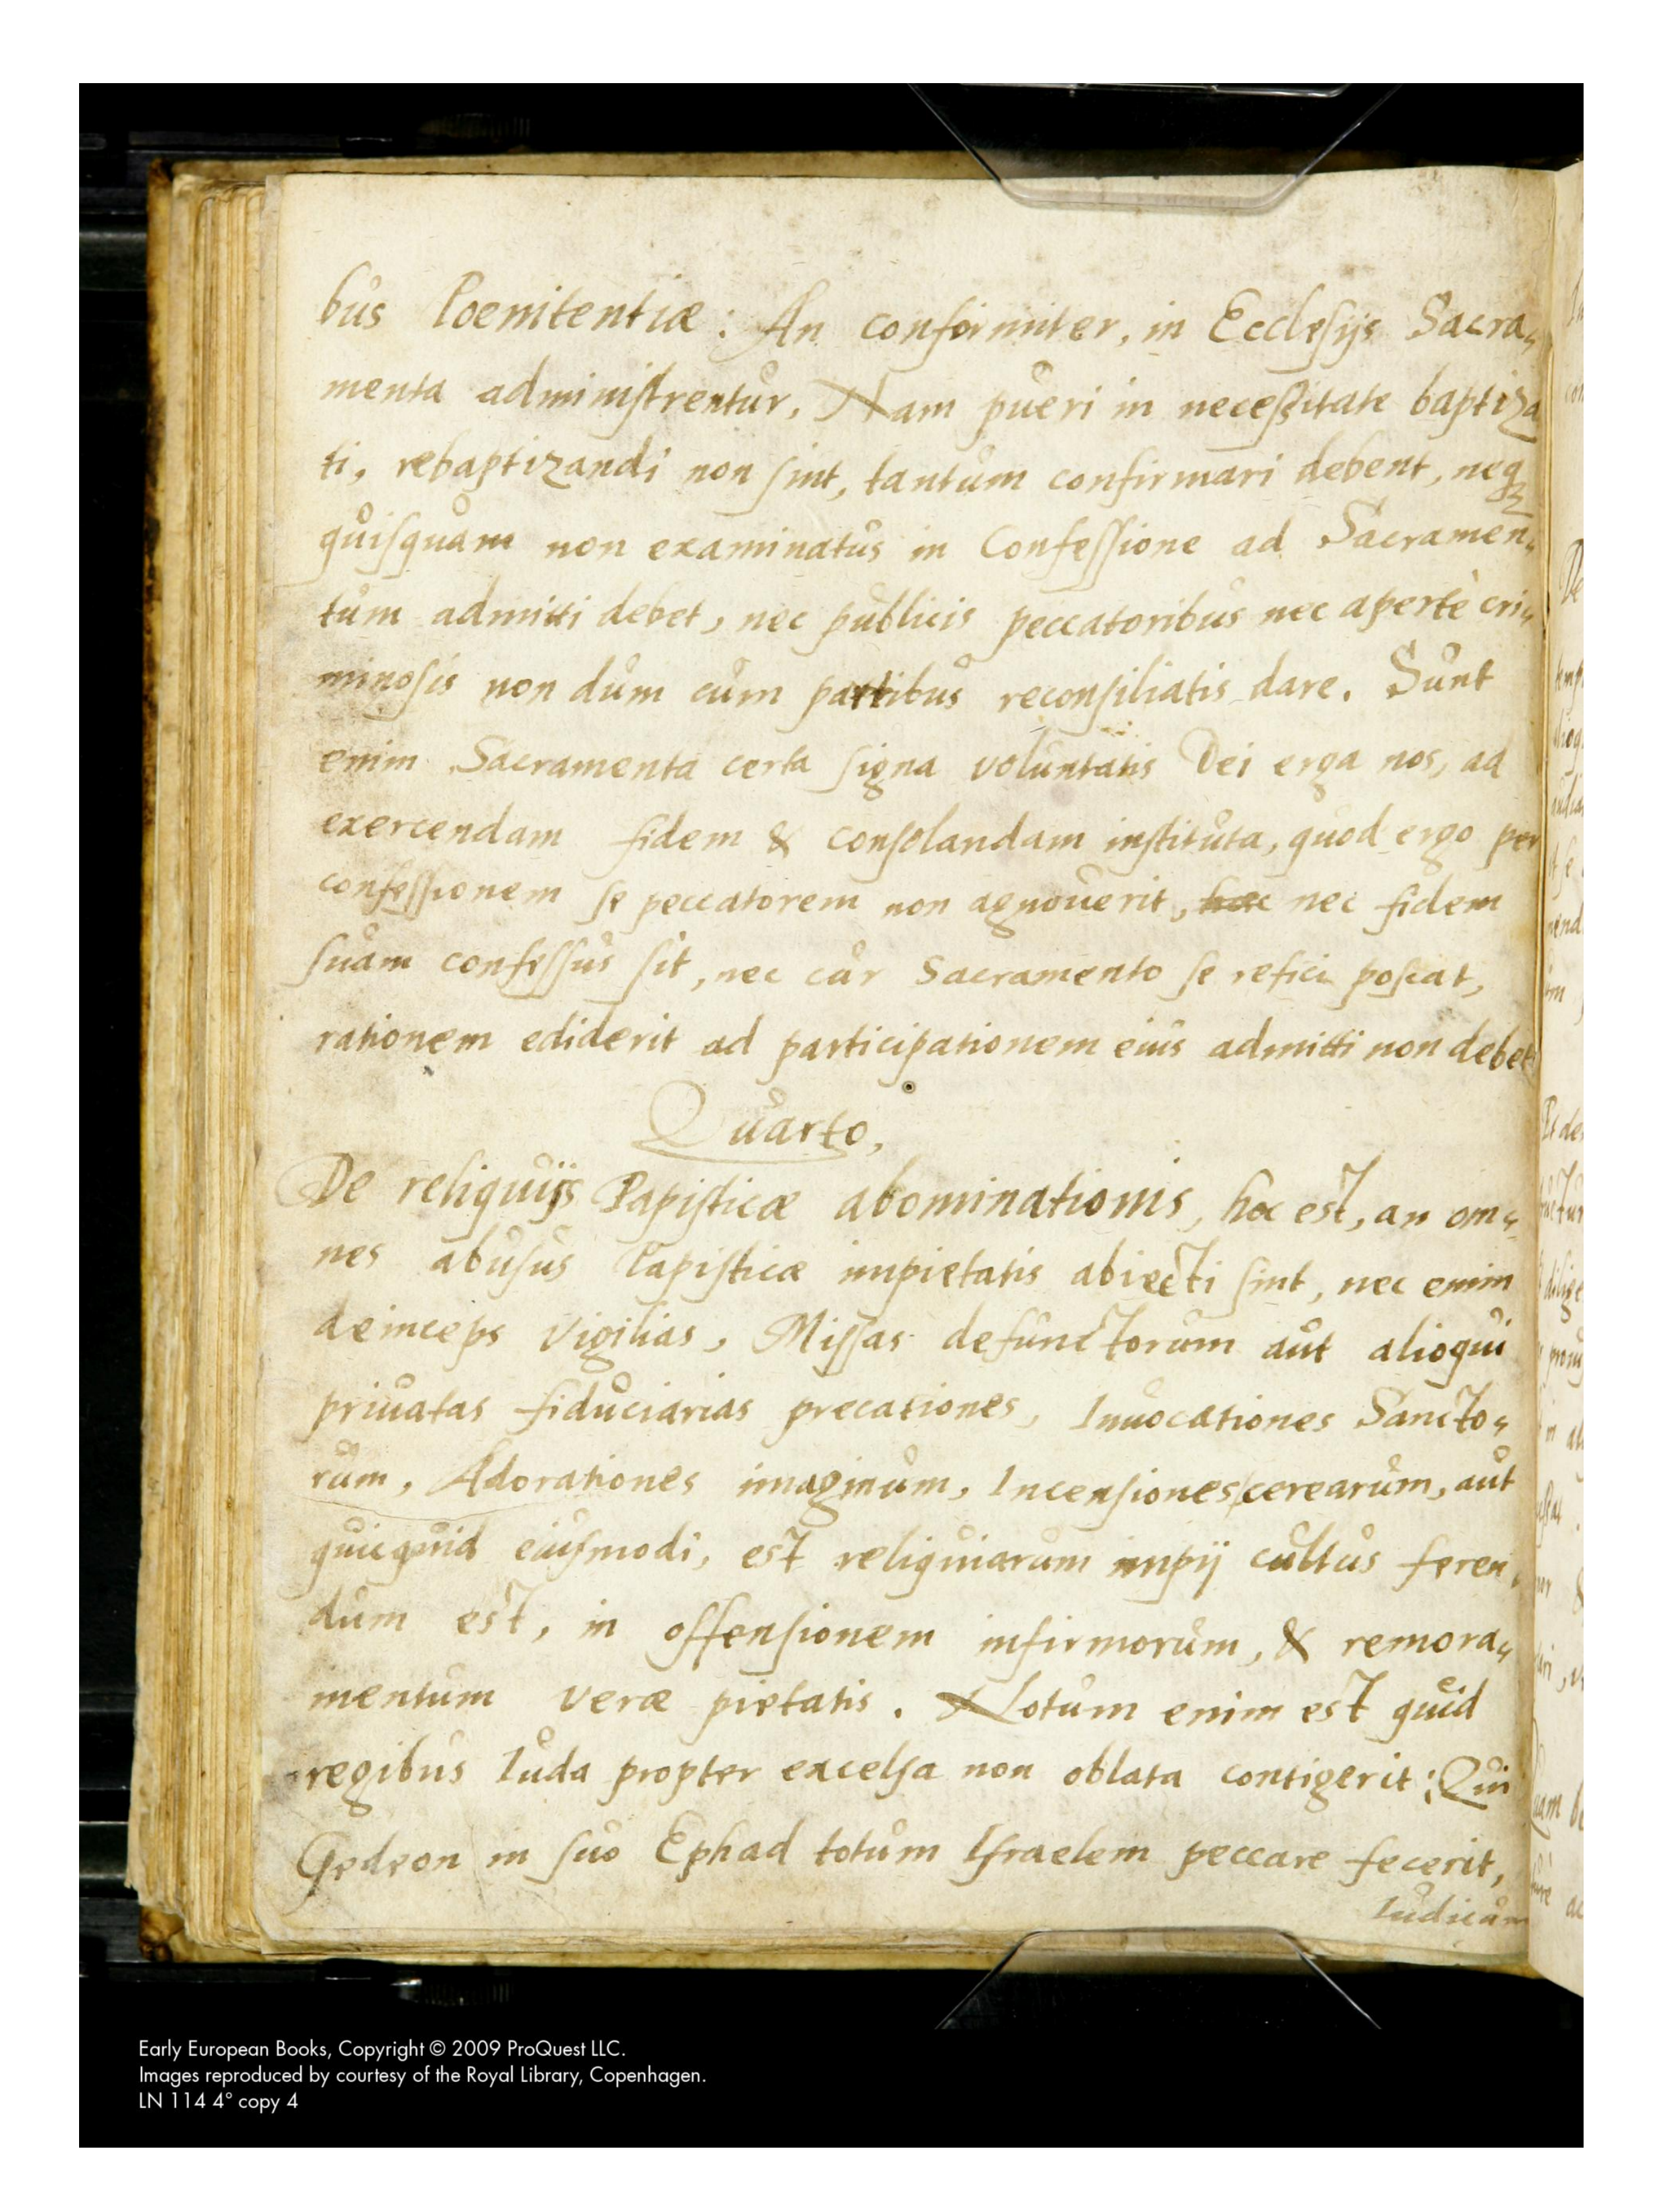 bus Poenitentiæ: An conformiter, in Ecclesijs Sacra„
menta administrentur, Nam pueri in necessitate baptiza
ti, rebaptizandi non sint, tantum confirmari debent, neq3
quisquam non examinatus in Confessione ad Sacramen„
tum admitti debet, nec publicis peccatoribus nec apertè cri„
minosis non dum cum partibus reconsiliatis dare. Sunt
enim Sacramenta certa signa voluntatis Dei erga nos, ad
exercendam fidem & consolandam instituta, quod ergo per
confessionem se peccatorem non agnouerit, hoc nec fidem
suam confessus sit, nec cur Sacramento se refici poscat,
rationem ediderit ad participationem eius admitti non debet
Quarto,
De reliquijs Papisticæ abominationis, hoc est, an om„
nes abusus Papisticæ impietatis abiecti sint, nec enim
deinceps Vigilias, Missas defunctorum aut alioqui
priuatas fiduciarias precationes, Inuocationes Sancto„
rum, Adorationes imaginum, Incensiones cerearum, aut
quicquid eiusmodi, est reliquiarum impij cultus feren„
dum est, in offensionem infirmorum, & remora„
mentum veræ pietatis. Notum enim est quid
regibus Iuda propter excelsa non oblata contigerit: Qui
Gedeon in suo Ephad totum Israelem peccare fecerit,
Iudicum
Early European Books, Copyright © 2009 ProQuest LLC.
Images reproduced by courtesy of the Royal Library, Copenhagen.
LN 114 4° copy 4